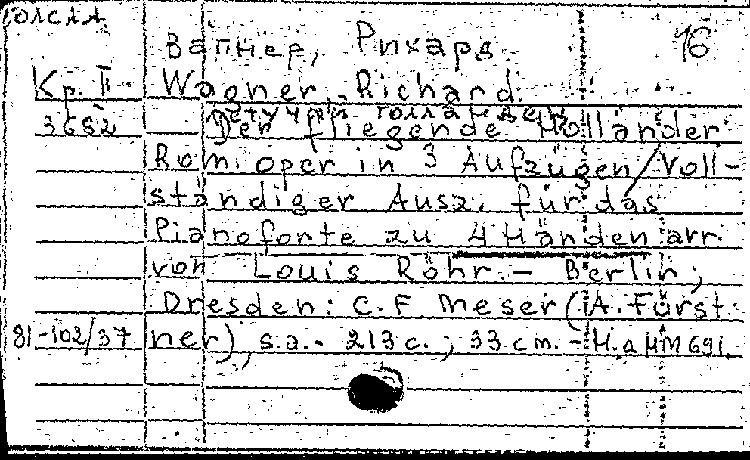 Вагнер, Рихард 16
Кр. II Wagner, Richard
3682 летучий голландец
Der fliegende Holländer
Rom. oper in 3 Aufzügen/Voll-
ständiger Ausz. für das
Pianoforte zu 4 Händen arr.
von Louis Röhr. – Berlin;
Dresden: C. F Meser (A. Fürst-
81-102/37 ner), s.a. - 213 с.; 33 cm. - Н.д